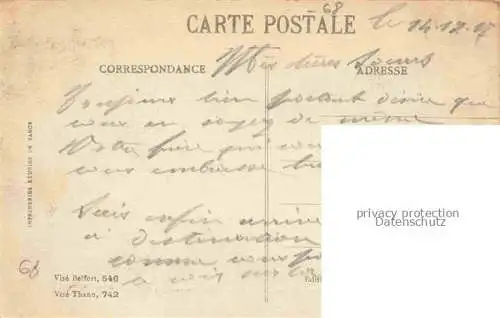 68
CARTE POSTALE
le 14-12-
CORRESPONDANCE
Mes chères Soeurs
ADRESSE
Toujours bien portant désire que
vous en soyez de même
Votre frère qui vous
vous embrasse
privacy protection
Datenschutz
Suis enfin arrivé
à destination
comme vous
à
IMPRIMERIES RÉUNIES DE NANCY
68
Visé Belfort, 546
Visé Thann, 742